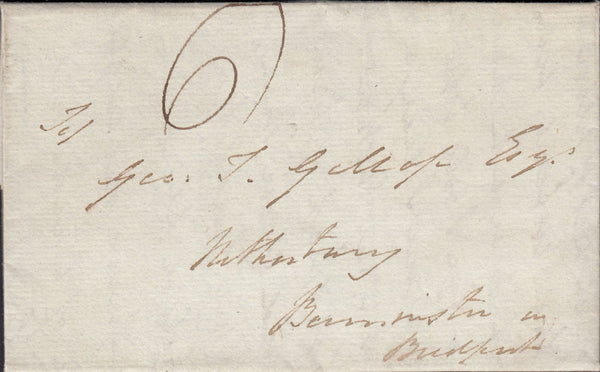 6
To/
Geo. T. Gollop Esqr.
Netherbury
Beaminster
Bridport